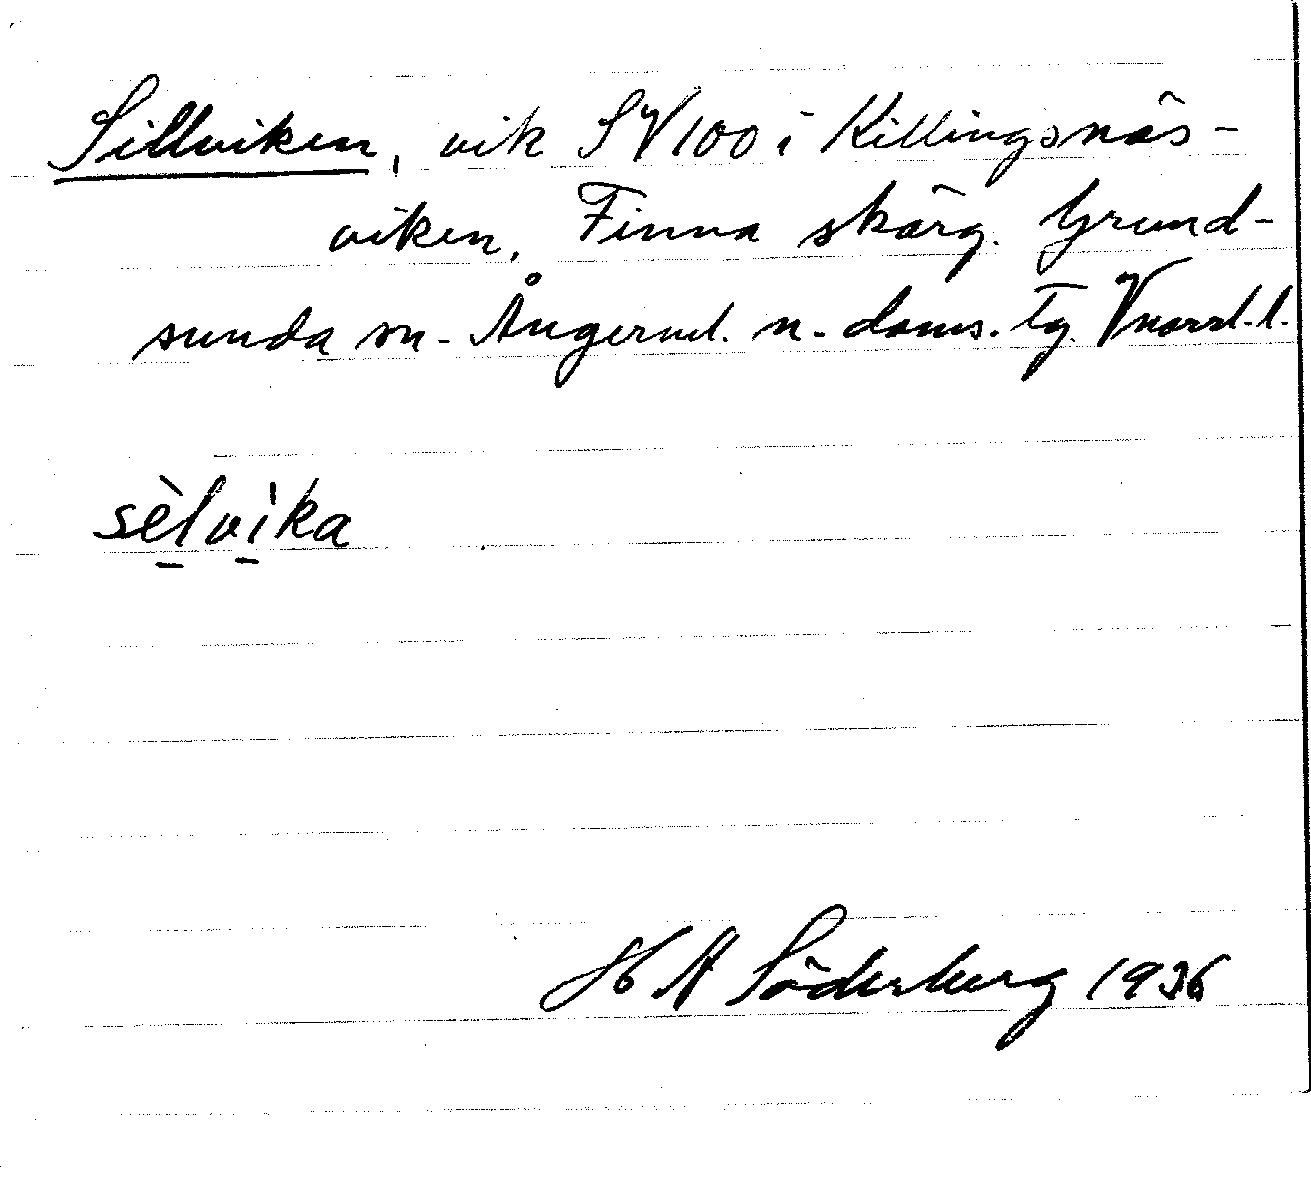 Sillviken, vik SV 100 i Killingsnäs-
viken, Finna skärg. Grund-
sunda sn. Ångerml. n. doms. tg. Vnorrl. l.
sèlvìka
H A Söderberg 1936